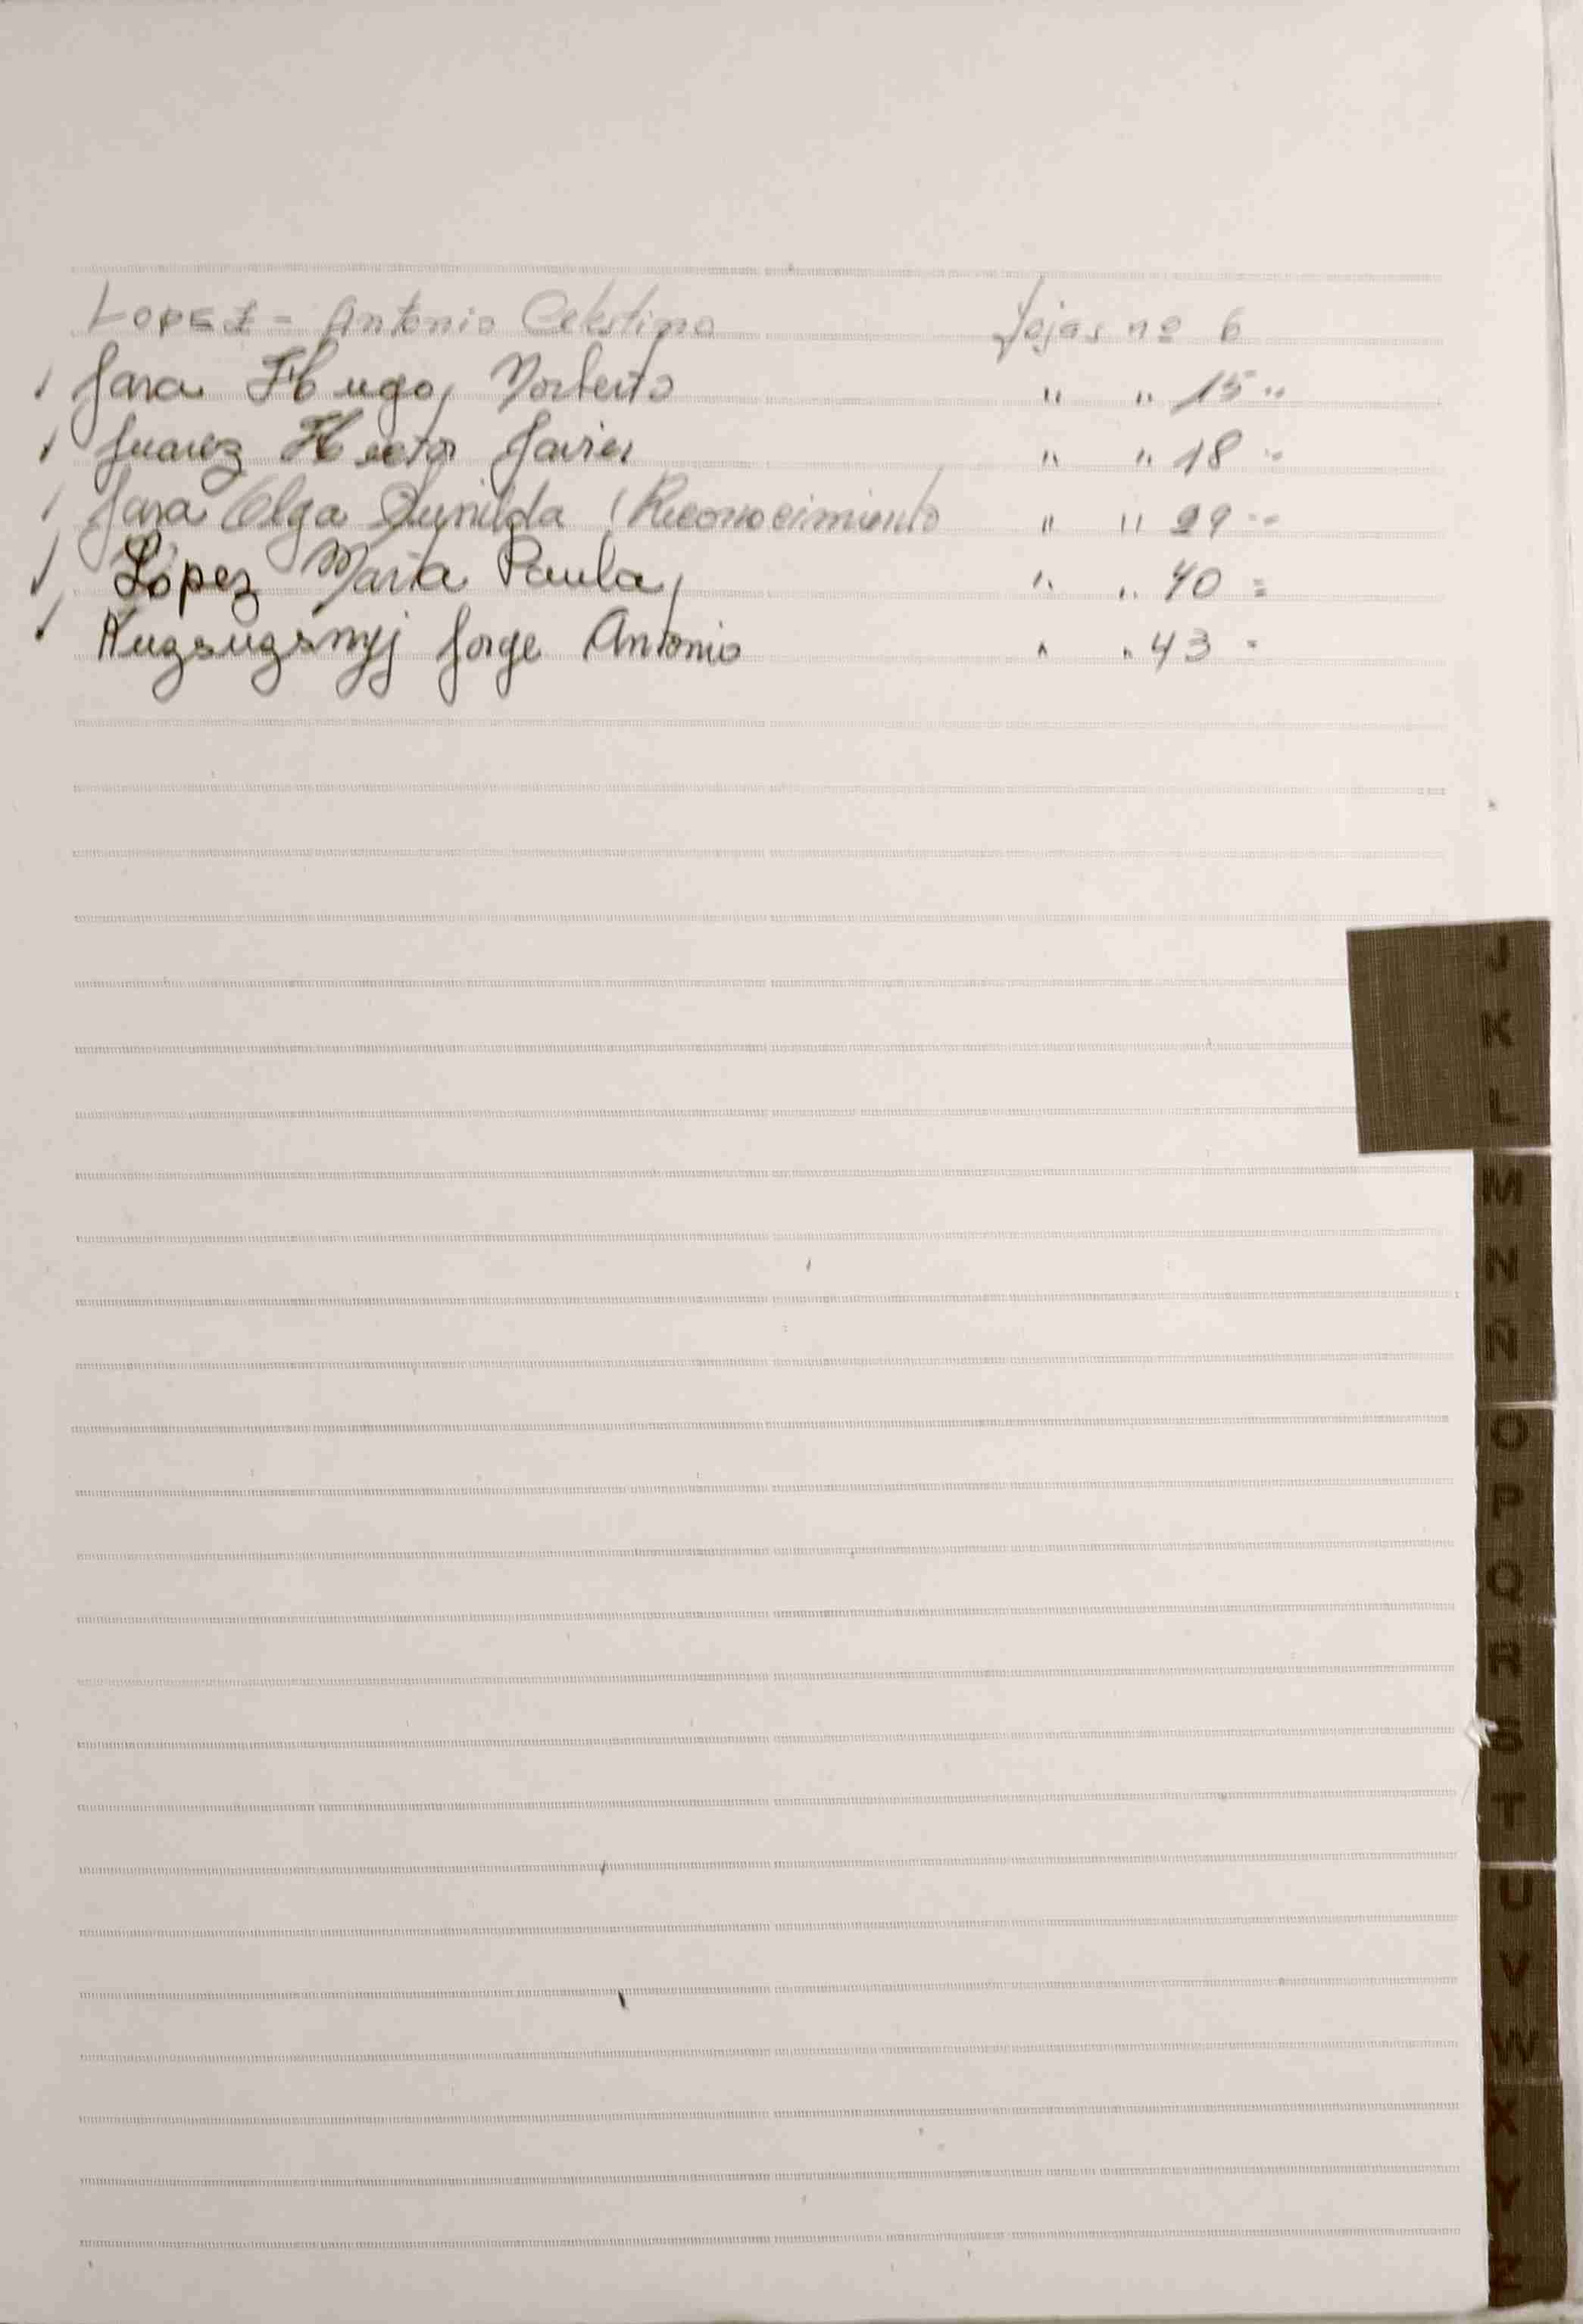 LOPEZ = Antonio Celestino fojas nº 6
Jara Hugo Norberto " " 15 "
Juarez Hector Javier " " 18 "
Jara Olga Lunilda (Reconocimiento " " 29 "
López María Paula " " 40 =
Jorge Antonio " " 43 =
J
K
L
M
N
Ñ
O
P
Q
R
S
T
U
V
W
X
Y
Z